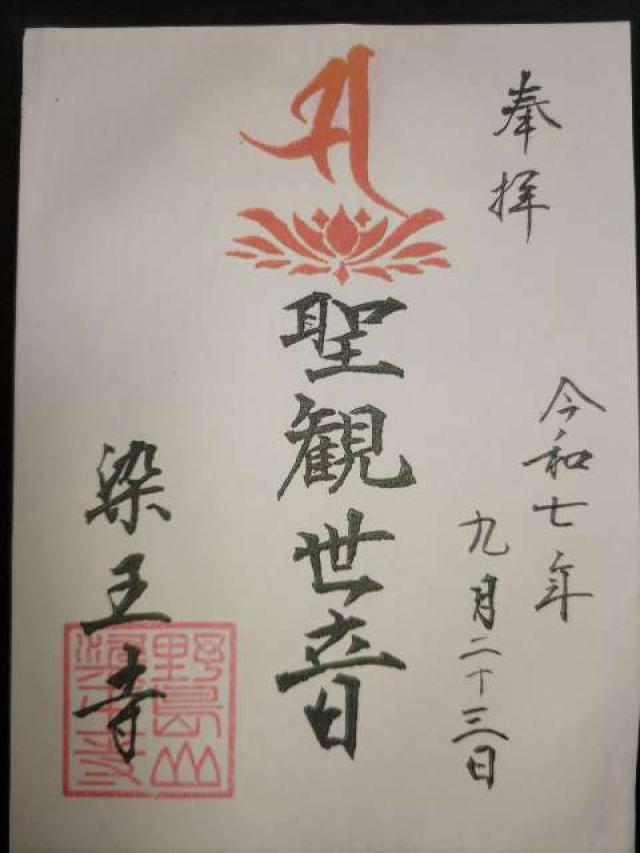 奉拝
令和七年
九月二十三日
聖観世音
染王寺
野島山